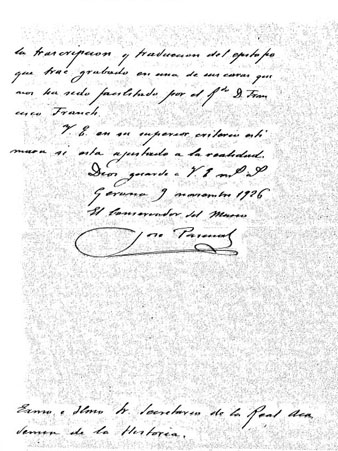 la trascripcion y traduccion del epitafio
que trae grabado en una de sus caras que
nos ha sido facilitado por el D. Fran
cisco Franch
V. E. en su superior criterio esti
mara si esta ajustado a la realidad.
Dios guarde a V E m^s a^s
Gerona 9 noviembre 1926
El Conservador del Museo
Jose Pascual
Exmo. e Ilmo Sr. Secretario de la Real Aca
demia de la Historia.